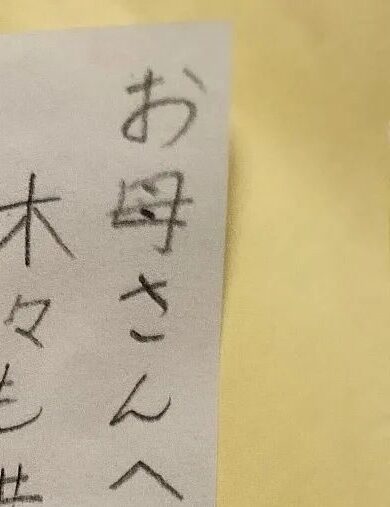 お母さんへ
木々も